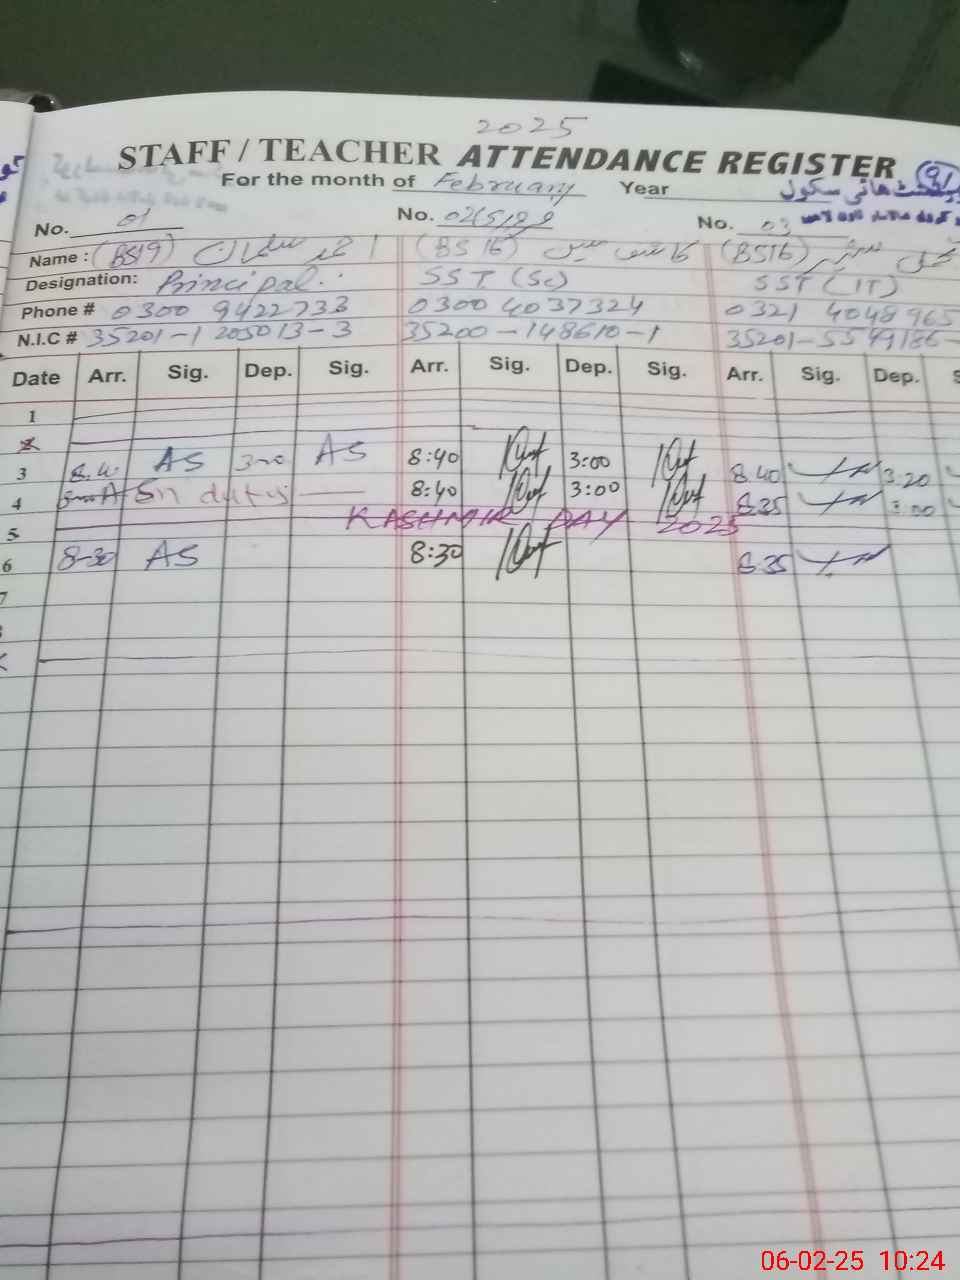 2025
STAFF / TEACHER ATTENDANCE REGISTER 91
For the month of February Year ہائی سکول
No. 01 No. No. 03
Name : (BS19) احمد سلمان (BS 16) کاشف (BS16)
Designation: Principal. SST (Sc) SST (IT)
Phone # 0300 9422733 0300 4037324 0321 4048965
N.I.C # 35201-1205013-3 35200-148610-1 35201-5549186-
Date Arr. Sig. Dep. Sig. Arr. Sig. Dep. Sig. Arr. Sig. Dep. S
1
3 8:40 AS 300 AS 8:40 3:00 8.40 3:20
4 on duty 8:40 3:00 8:35 3:00
5 KASHMIR DAY 2025
6 8-30 AS 8:30 8.35
7
06-02-25 10:24